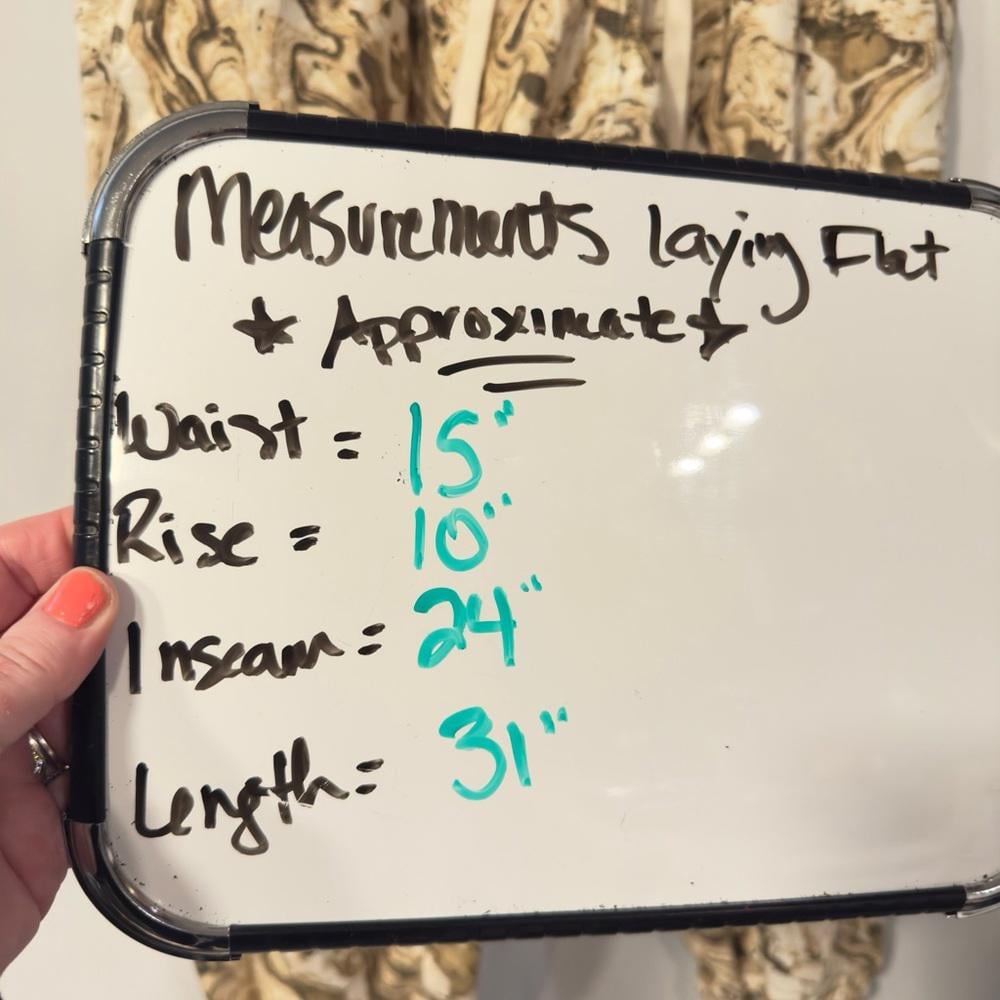 Measurements Laying Flat
★ Approximate ★
Waist = 15"
Rise = 10"
Inseam = 24"
Length = 31"